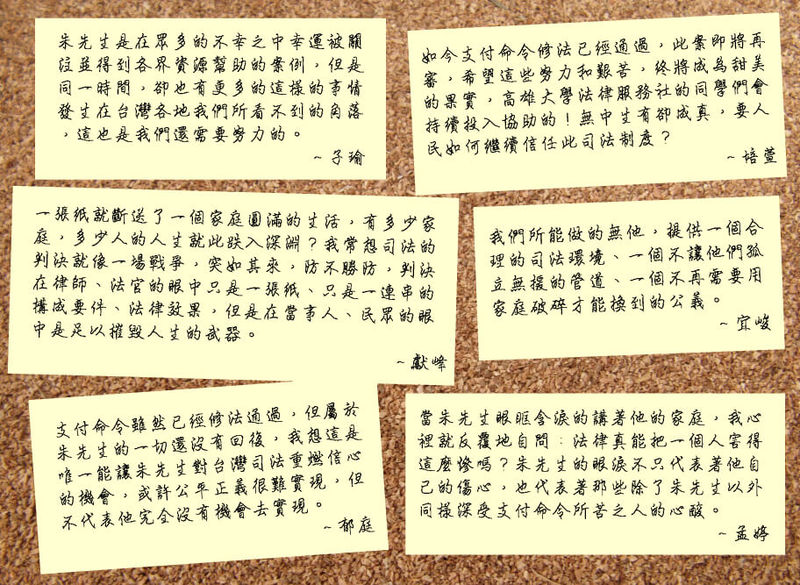 朱先生是在眾多的不幸之中幸運被關
注並得到各界資源幫助的案例，但是
同一時間，卻也有更多的這樣的事情
發生在台灣各地我們所看不到的角落
，這也是我們還需要努力的。
~子瑜
如今支付命令修法已經通過，此案即將再
審，希望這些努力和艱苦，終將成為甜美
的果實，高雄大學法律服務社的同學們會
持續投入協助的！無中生有卻成真，要人
民如何繼續信任此司法制度？
~培萱
一張紙就斷送了一個家庭圓滿的生活，有多少家
庭，多少人的人生就此跌入深淵？我常想司法的
判決就像一場戰爭，突如其來，防不勝防，判決
在律師、法官的眼中只是一張紙、只是一連串的
構成要件、法律效果，但是在當事人、民眾的眼
中是足以摧毀人生的武器。
~獻峰
我們所能做的無他，提供一個合
理的司法環境、一個不讓他們孤
立無援的管道、一個不再需要用
家庭破碎才能換到的公義。
~宜峻
支付命令雖然已經修法通過，但屬於
朱先生的一切還沒有回復，我想這是
唯一能讓朱先生對台灣司法重燃信心
的機會，或許公平正義很難實現，但
不代表他完全沒有機會去實現。
~郁庭
當朱先生眼眶含淚的講著他的家庭，我心
裡就反覆地自問：法律真能把一個人害得
這麼慘嗎？朱先生的眼淚不只代表著他自
己的傷心，也代表著那些除了朱先生以外
同樣深受支付命令所苦之人的心酸。
~孟婷